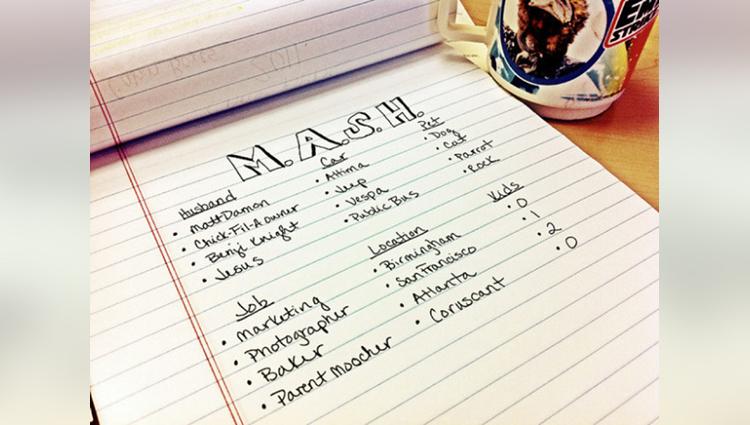 M.A.S.H.
Husband
• Matt Damon
• Chick-Fil-A owner
• Benji Knight
• Jesus
Car
• Altima
• Jeep
• Vespa
• Public Bus
Pet
• Dog
• Cat
• Parrot
• Rock
Job
• marketing
• Photographer
• Baker
• Parent Moocher
Location
• Birmingham
• San Francisco
• Atlanta
• Coruscant
Kids
• 0
• 1
• 2
• 0
2011